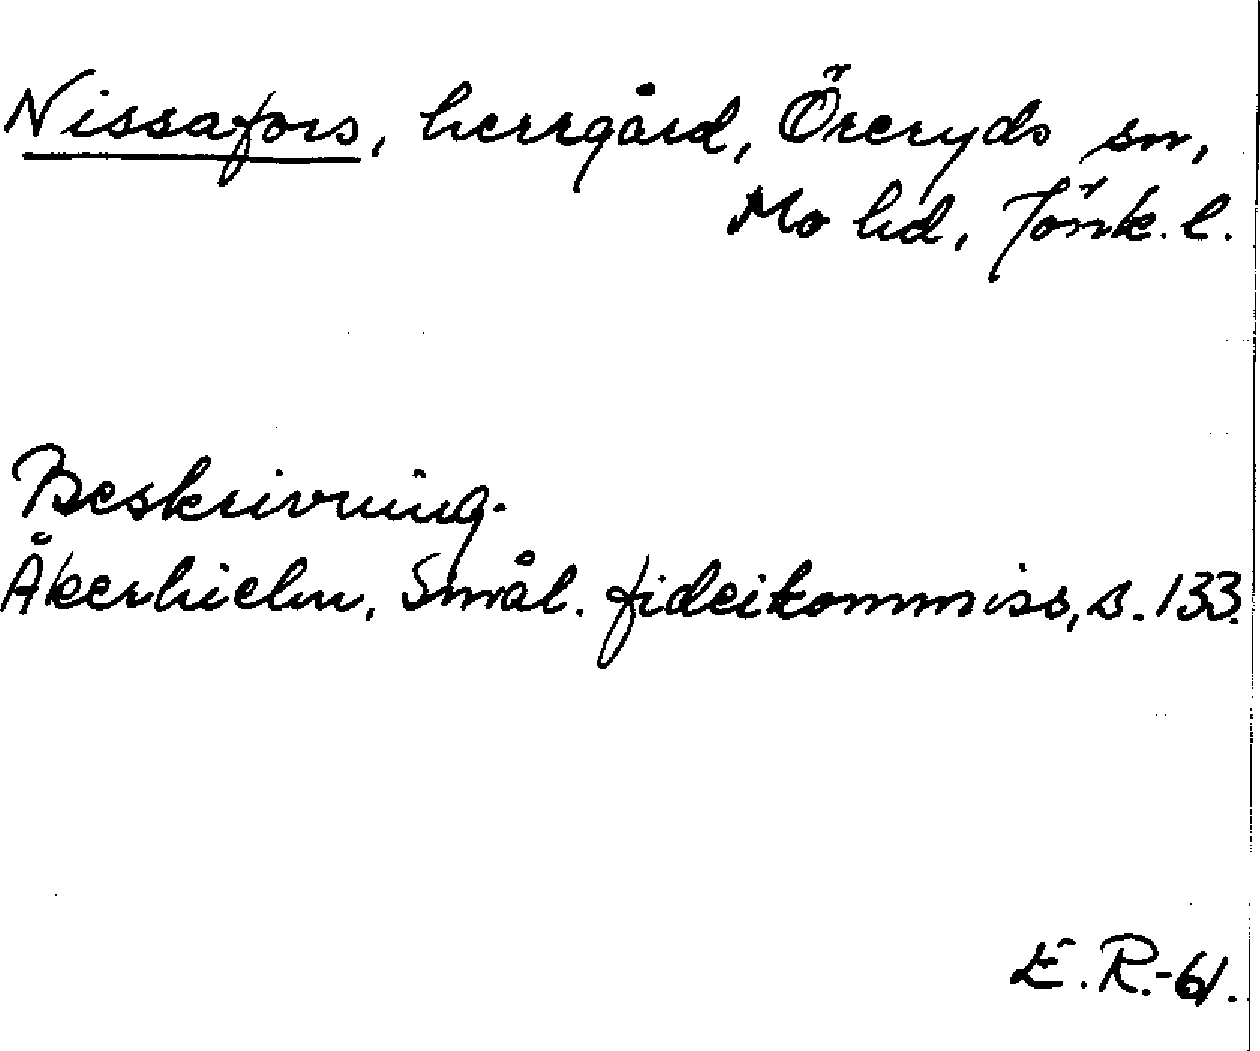 Nissafors, herrgård, Öreryds sn,
Mo hd, Jönk. l.
Beskrivning.
Åkerhielm, Smål. fideikommiss, s. 133.
E. R. -61.